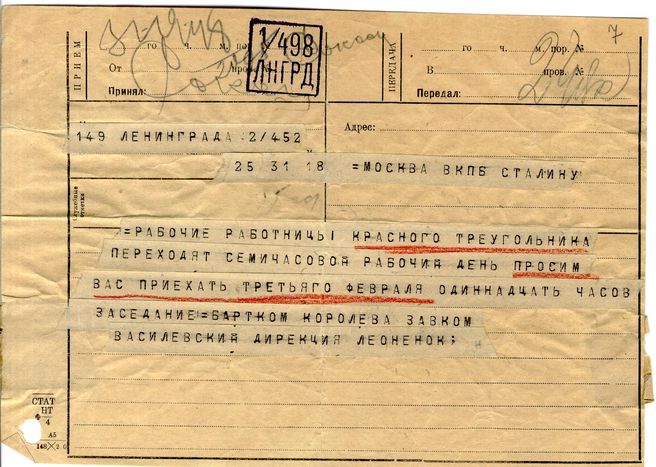 7
1/498
ЛНГРД
ПРИЕМ
го ч. м. пор. №
От
Принял:
ПЕРЕДАЧА
го ч. м. пор. №
В пров. №
Передал:
149 ЛЕНИНГРАДА 2/452
Адрес:
25 31 18 =МОСКВА ВКПБ СТАЛИНУ
Служебные
отметки
=РАБОЧИЕ РАБОТНИЦЫ КРАСНОГО ТРЕУГОЛЬНИКА
ПЕРЕХОДЯТ СЕМИЧАСОВОЙ РАБОЧИЙ ДЕНЬ ПРОСИМ
ВАС ПРИЕХАТЬ ТРЕТЬЯГО ФЕВРАЛЯ ОДИННАДЦАТЬ ЧАСОВ
ЗАСЕДАНИЕ=БАРТКОМ КОРОЛЕВА ЗАВКОМ
ВАСИЛЕВСКИЙ ДИРЕКЦИЯ ЛЕОНЕНОК;
СТАТ
НТ
Ф 4
А5
148×2.0